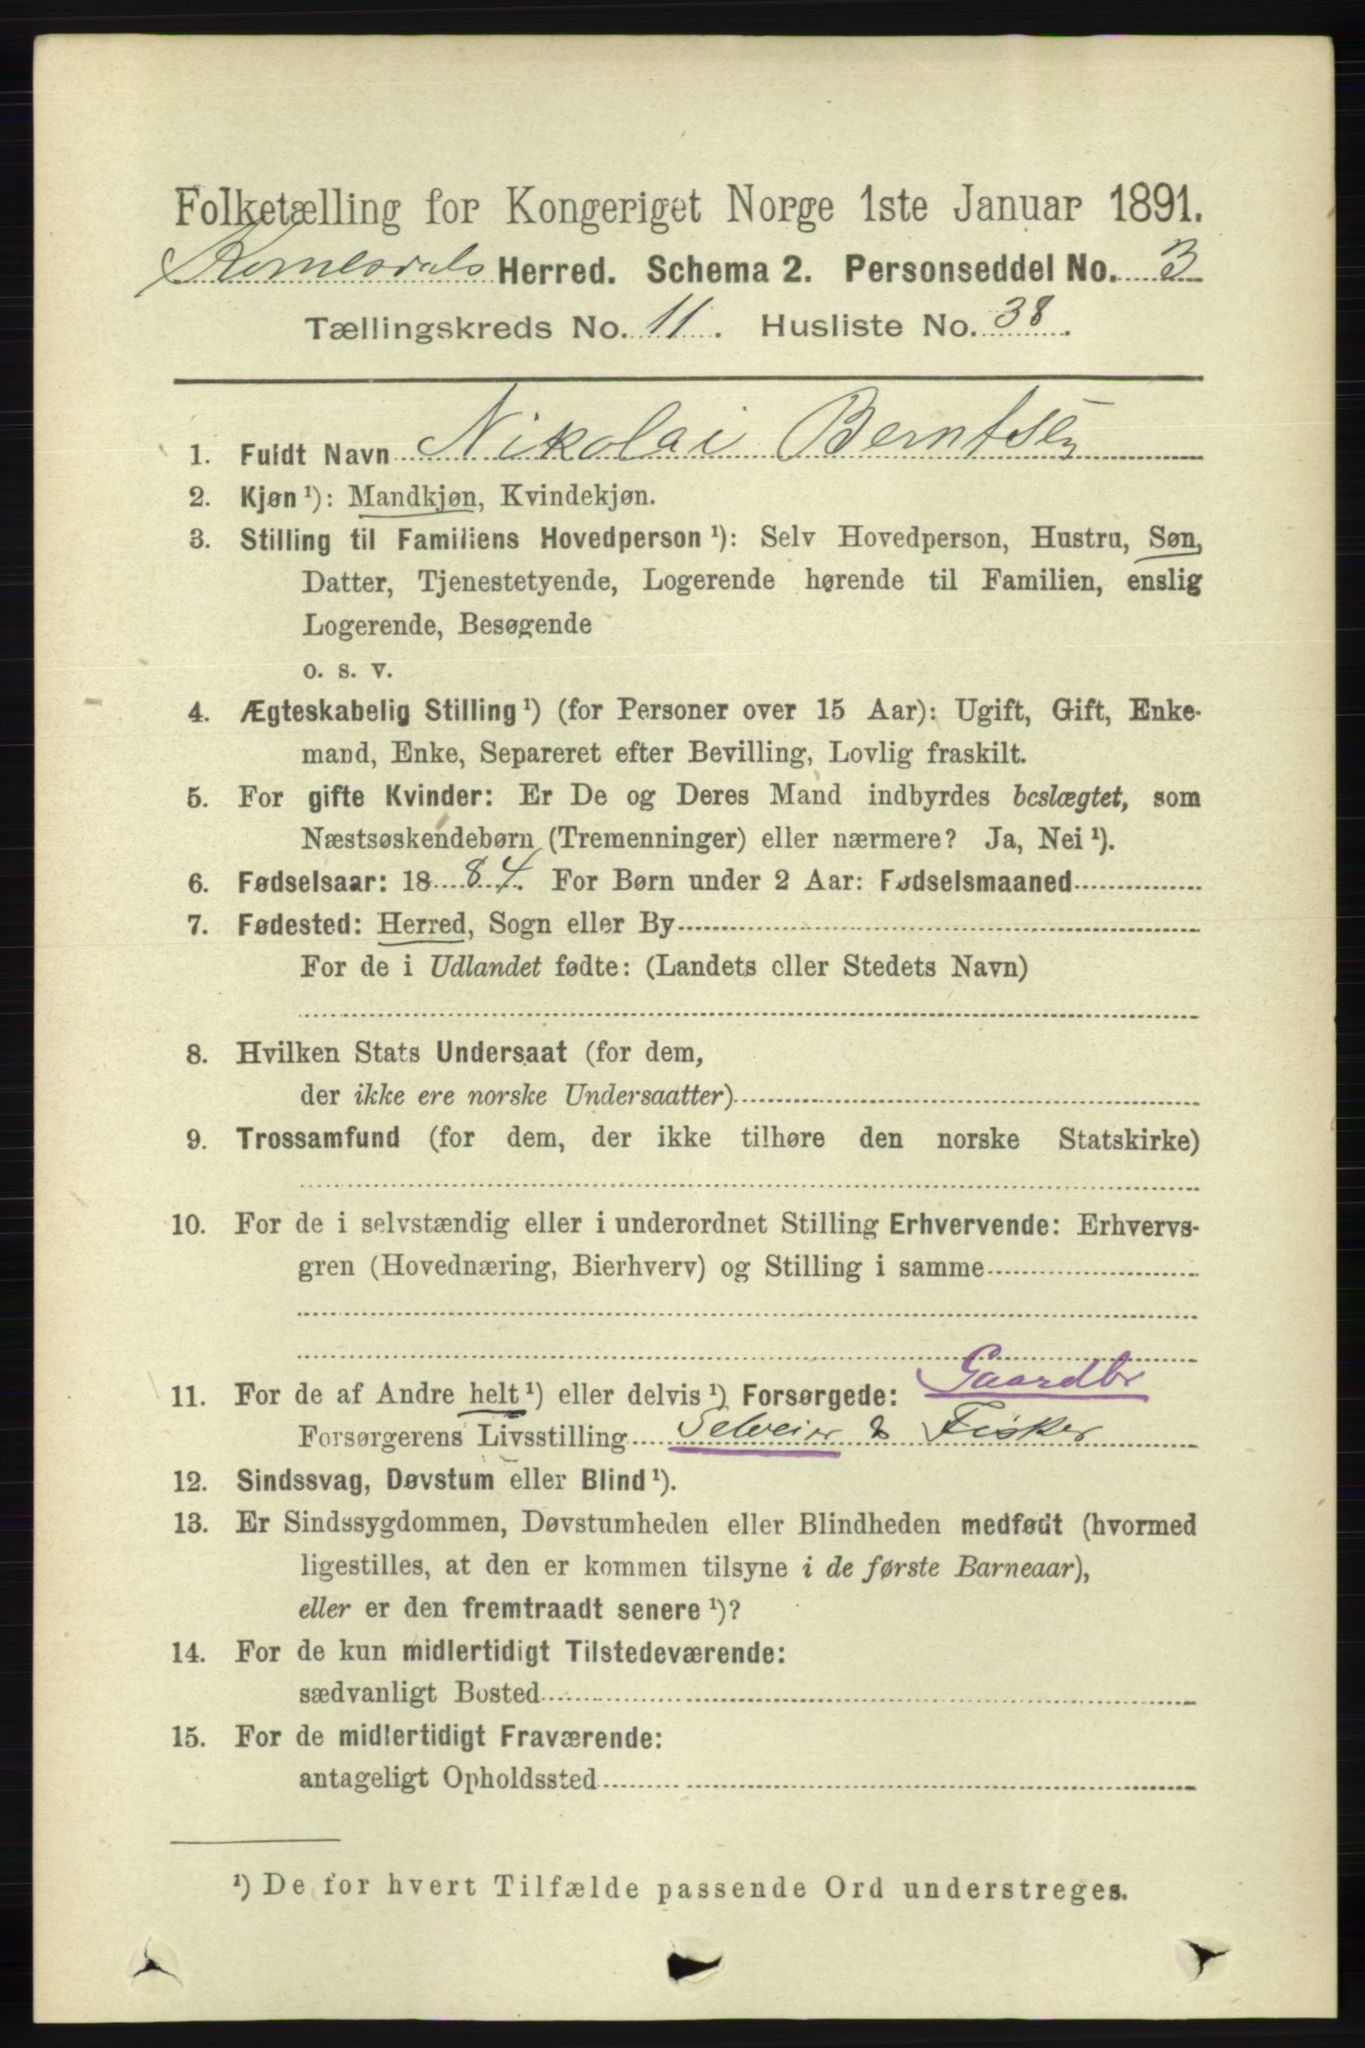 Folketælling for Kongeriget Norge 1ste Januar 1891.
Romesdals Herred. Schema 2. Personseddel No. 3
Tællingskreds No. 11. Husliste No. 38.
1. Fuldt Navn Nikolai Berntsen
2. Kjøn ¹): Mandkjøn, Kvindekjøn.
3. Stilling til Familiens Hovedperson ¹): Selv Hovedperson, Hustru, Søn,
Datter, Tjenestetyende, Logerende hørende til Familien, enslig
Logerende, Besøgende
o. s. v.
4. Ægteskabelig Stilling ¹) (for Personer over 15 Aar): Ugift, Gift, Enke-
mand, Enke, Separeret efter Bevilling, Lovlig fraskilt.
5. For gifte Kvinder: Er De og Deres Mand indbyrdes beslægtet, som
Næstsøskendebørn (Tremenninger) eller nærmere? Ja, Nei ¹).
6. Fødselsaar: 1884. For Børn under 2 Aar: Fødselsmaaned
7. Fødested: Herred, Sogn eller By
For de i Udlandet fødte: (Landets eller Stedets Navn)
8. Hvilken Stats Undersaat (for dem,
der ikke ere norske Undersaatter)
9. Trossamfund (for dem, der ikke tilhøre den norske Statskirke)
10. For de i selvstændig eller i underordnet Stilling Erhvervende: Erhvervs-
gren (Hovednæring, Bierhverv) og Stilling i samme
Gaardbr
11. For de af Andre helt ¹) eller delvis ¹) Forsørgede:
Forsørgerens Livsstilling Selveier & Fisker
12. Sindssvag, Døvstum eller Blind ¹).
13. Er Sindssygdommen, Døvstumheden eller Blindheden medfødt (hvormed
ligestilles, at den er kommen tilsyne i de første Barneaar),
eller er den fremtraadt senere ¹)?
14. For de kun midlertidigt Tilstedeværende:
sædvanligt Bosted
15. For de midlertidigt Fraværende:
antageligt Opholdssted
¹) De for hvert Tilfælde passende Ord understreges.